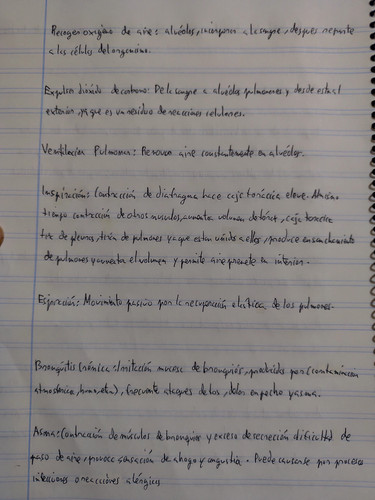 Recoger oxígeno de aire: alvéolos, incorporar a la sangre, después reparte
a las células del organismo.
Expulsar dióxido de carbono: De la sangre a alvéolos pulmonares y desde esta al
exterior, ya que es un residuo de reacciones celulares.
Ventilación Pulmonar: Renovar aire constantemente en alvéolos.
Inspiración: Contracción de diafragma hace caja torácica eleve. Al mismo
tiempo contracción de otros músculos, aumenta volumen de tórax, caja torácica
tira de pleuras, tiran de pulmones ya que están unidos a ellos, produce ensanchamiento
de pulmones y aumenta el volumen y permite aire penetre en interior.
Espiración: Movimiento pasivo por la recuperación elástica de los pulmones.
Bronquitis Crónica: Irritación mucosa de bronquios, producida por (contaminación
atmosférica, humo, etc.), frecuente ataques de tos, dolor en pecho y asma.
Asma: Contracción de músculos de bronquios y exceso de secreción dificultad de
paso de aire, provoca sensación de ahogo y angustia. Puede causarse por procesos
infecciosos o reacciones alérgicas